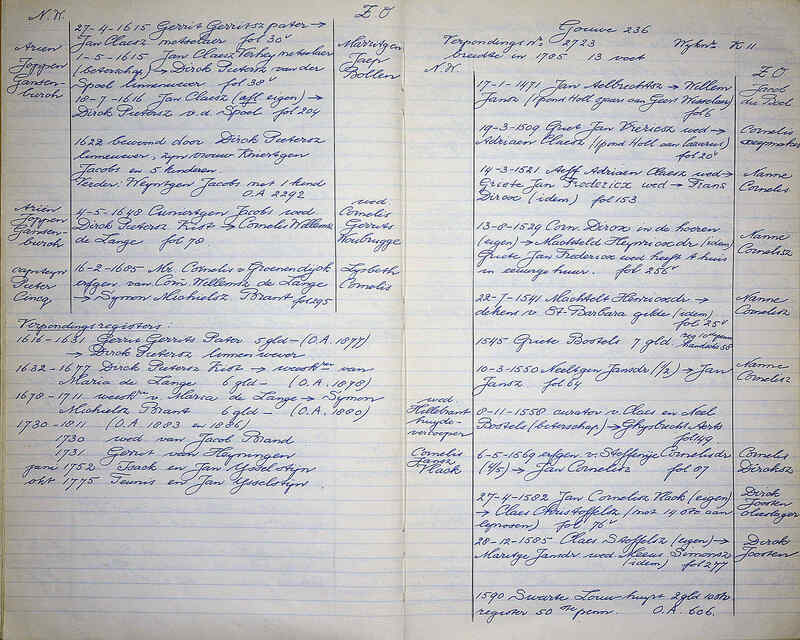 N.W.
Z.O
27-4-1615 Gerrit Gerritsz pater →
Jan Claesz metselaer fol 30v
1-5-1615 Jan Claesz Verhey metselaer
(beterschap) → Dirck Pietersz van der
Spool linnenwever fol 38v
18-7-1616 Jan Claesz (afl eigen) →
Dirck Pietersz v.d. Spool fol 204
Arien
Joppen
Gansen-
burch
Marritgen
Jaep
Bollen
1622 bewoond door Dirck Pietersz
linnenwever, zyn vrouw Kniertgen
Jacobs en 5 kinderen
Verder: Weyntgen Jacobs met 1 kind
O.A 2292
Ariën
Joppen
Gansen-
burch
4-5-1648 Cunertgen Jacobs wed
Dirck Pietersz Kist → Cornelis Willemsz
de Lange fol 78
wed
Cornelis
Gerrits
Woubrugge
capiteyn
Pieter
Cincq
16-2-1685 Mr. Cornelis v Groenendijck
erfgen van Corn Willemsz de Lange
→ Symon Michielsz Brant fol 295
Lysbeth
Cornelis
Verpondingsregisters:
1616-1631 Gerrit Gerrits Pater 5 gld- (O.A. 1877)
→ Dirck Pietersz linnenwever
1632-1677 Dirck Pietersz Kist → weeskren van
Maria de Lange 6 gld- (O.A. 1878)
1678-1711 weeskren v. Maria de Lange → Symon
Michielsz Brant 6 gld- (O.A. 1880)
1730-1811 (O.A. 1883 en 1886)
1730 wed van Jacob Brand
1731 Gerrit van Heyningen
juni 1752 Isack en Jan Ysselstyn
okt 1775 Teunis en Jan Ysselstyn
Gouwe 236
Verpondings no. 2723 Wykno. K 11
breedte in 1785 13 voet
N.W.
Z.O
17-1-1471 Jan Aelbrechtsz → Willem
Jansz (1 pond Holl spaeri aen Geert Wesselsz)
fol 6
Jacob
du Pool
19-3-1509 Griet Jan Vriericx wed →
Adriaen Claesz (1 pond Holl aen Lazarus)
fol 20v
Cornelis
14-3-1521 Aeff Adriaen Claesz wed →
Griete Jan Fredericx wed → Frans
Dircx (idem) fol 153
Nanne
Cornelis
13-8-1529 Corn. Dircx in de hooren
(eigen) → Machteld Heynricxdr (idem)
Griete Jan Fredericx wed heeft t huis
in eeuwge huer. fol 256v
Nanne
Cornelisz
22-7-1541 Machtelt Henricxdr →
dekens v St-Barbara gilde (idem)
fol 25v
Nanne
Cornelisz
1545 Griete Bostels 7 gld
reg 10e penn
10-3-1550 Neeltgen Jansdr (1/2) → Jan
Jansz fol 64
Nanne
Cornelisz
wed.
Hillebrant
huyde-
vercooper
8-11-1558 curator v. Claes en Neel
Bostels (beterschap) → Ghysbrecht Aerts
fol 49
Cornelis
Jansz
Vlack
6-5-1569 erfgen v. Stoffentje Cornelisdr
(4/5) → Jan Cornelisz fol 87
Cornelis
Dircksz
27-4-1582 Jan Cornelisz Vlack (eigen)
→ Claes Christoffelsz (met 14 st aan
leprosen) fol 76v
Dirck
Joosten
olieslager
28-12-1585 Claes Stoffelsz (eigen) →
Maritge Jansdr wed Meeus Simonsz
(idem) fol 277
Dirck
Joosten
1590 Swarte Louw huyst 2 gld 10 st
register 50ste penn. O.A. 606.